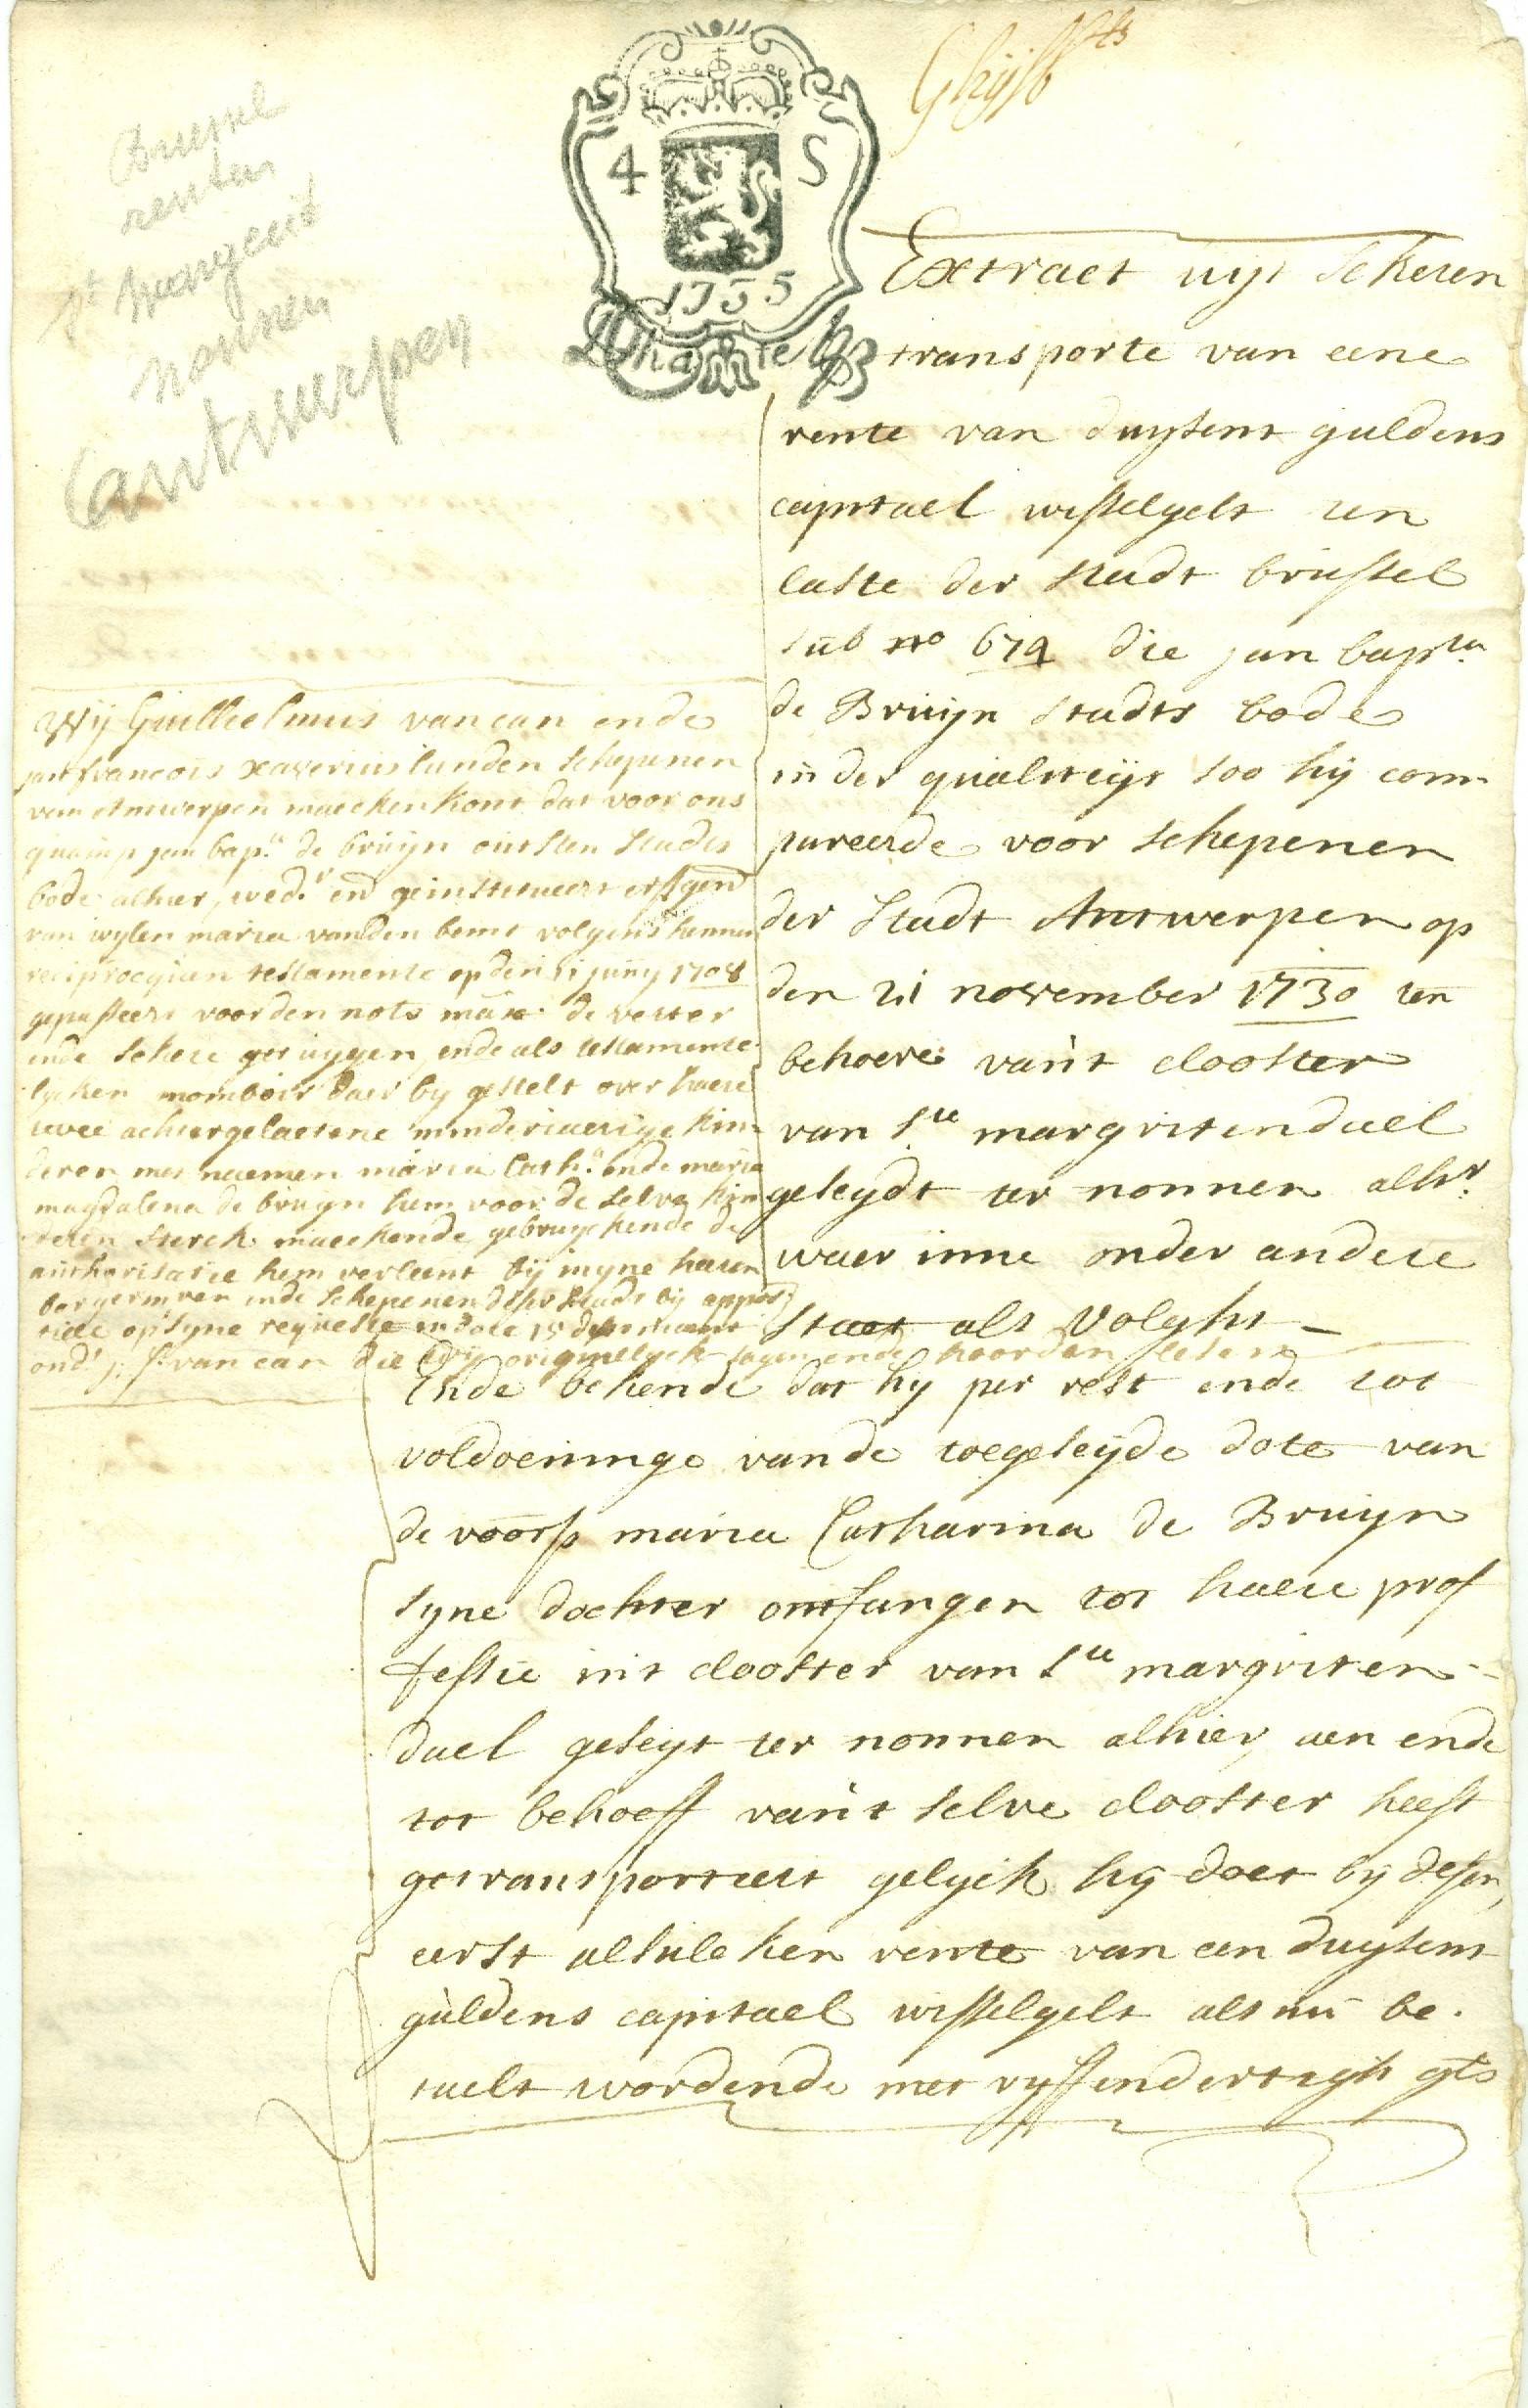 Ghijsb ts
Brussel
renten
St
nonnen
antwerpen
4 S
1755
Extract uijt sekeren
transporte van eene
rente van duysent guldens
capitael wisselgelt ten
laste der stadt brussel
sub no 679 die jan bap.ta
de Bruijn stadts bode
in der qualiteijt soo hij com-
pareerde voor schepenen
der stadt Antwerpen op
den 21 november 1730 ten
behoeve van't clooster
van S.te margritendael
geseydt ter nonnen alh.r
waer inne onder andere
staet als volght
Wij Guilhelmus van can ende
jan francois xaverius lunden schepenen
van Antwerpen maecken kont dat voor ons
quamp jan bap.ta de bruijn outsten stadts
bode alhier, wed.r en geinstitueert erffgen
van wylen maria vanden bemt volgens hennen
reciprocquen testamente op den 11 juny 1708
gepasseert voor den nots de vester
ende sekere getuygen, ende als testamente-
lycken momboir daer by gestelt over haere
twee achtergelaetene minderiaerige kin-
deren met naemen maria Cath.a ende maria
magdalena de bruijn hem voor de selve kin
deren sterck maeckende gebruyckende de
authorisatie hem verleent bij myne heeren
borgermren ende schepenen deser stadt bij appos-
tille op syne requeste in date 15 deser maent
ond.t van can die wij originelyck sagen ende hoorden lesen
Ende bekende dat hy per rest ende tot
voldoeninge vande toegeseijde dote van
de voorsz maria Catharina de Bruijn
syne dochter omfangen tot haere prof
fessie in't clooster van S.te margriten-
dael geseijt ter nonnen alhier, aen ende
tot behoeff van't selve clooster heeft
getransporteert gelyck hy doet by desen,
eerst alsulcken rente van een duysent
guldens capitael wisselgelt als nu be-
taelt wordende met vyffendertigh gls